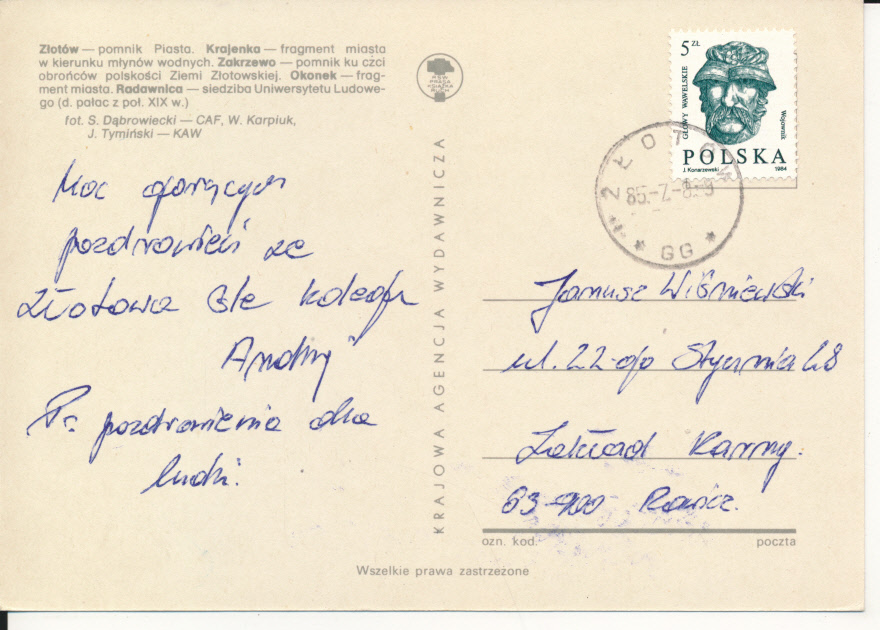 Złotów — pomnik Piasta. Krajenka — fragment miasta
w kierunku młynów wodnych. Zakrzewo — pomnik ku czci
obrońców polskości Ziemi Złotowskiej. Okonek — frag-
ment miasta. Radawnica — siedziba Uniwersytetu Ludowe-
go (d. pałac z poł. XIX w.)
fot. S. Dąbrowiecki — CAF, W. Karpiuk,
J. Tymiński — KAW
Moc gorących
pozdrowień ze
Złotowa śle kolega
Andrzej
Ps. pozdrowienia dla
ludzi.
KRAJOWA AGENCJA WYDAWNICZA
5 ZŁ
GŁOWY WAWELSKIE
Wojownik
POLSKA
J. Konarzewski 1984
ZŁOTÓW
GG
Janusz Wiśniewski
ul. 22-go Stycznia 48
Zakład Karny.
63-900 Rawicz.
ozn. kod. poczta
Wszelkie prawa zastrzeżone